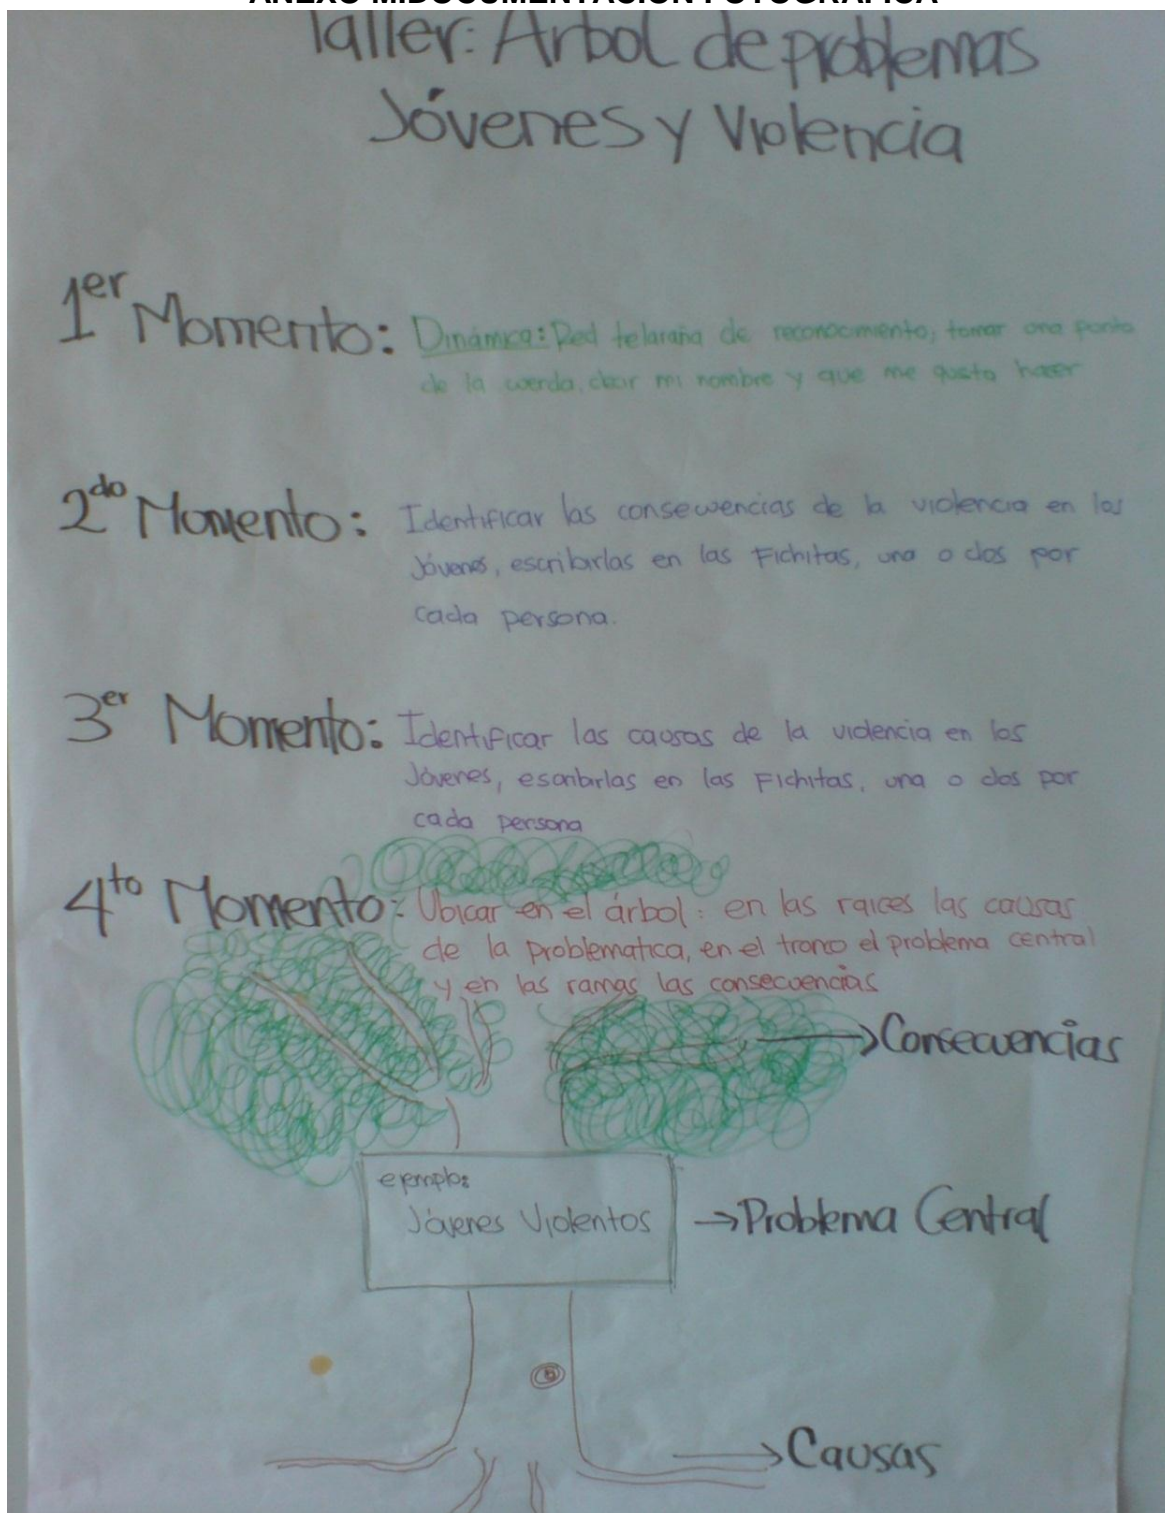 ANEXO M:DOCUMENTACIÓN FOTOGRÁFICA
Taller: Árbol de problemas
Jóvenes y Violencia
1er Momento: Dinámica: Red telaraña de reconocimiento, tomar una punta
de la cuerda, decir mi nombre y que me gusta hacer
2do Momento: Identificar las consecuencias de la violencia en los
Jóvenes, escribirlas en las Fichitas, una o dos por
cada persona.
3er Momento: Identificar las causas de la violencia en los
Jóvenes, escribirlas en las Fichitas, una o dos por
cada persona
4to Momento: Ubicar en el árbol: en las raices las causas
de la problematica, en el tronco el problema central
y en las ramas las consecuencias
→Consecuencias
ejemplo:
Jóvenes Violentos →Problema Central
→Causas